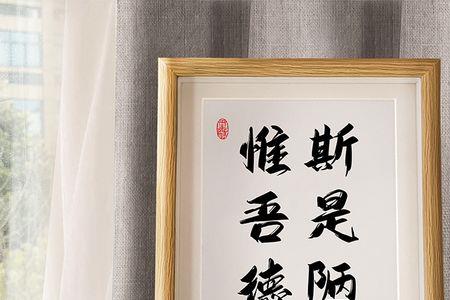 斯是陋
惟吾德